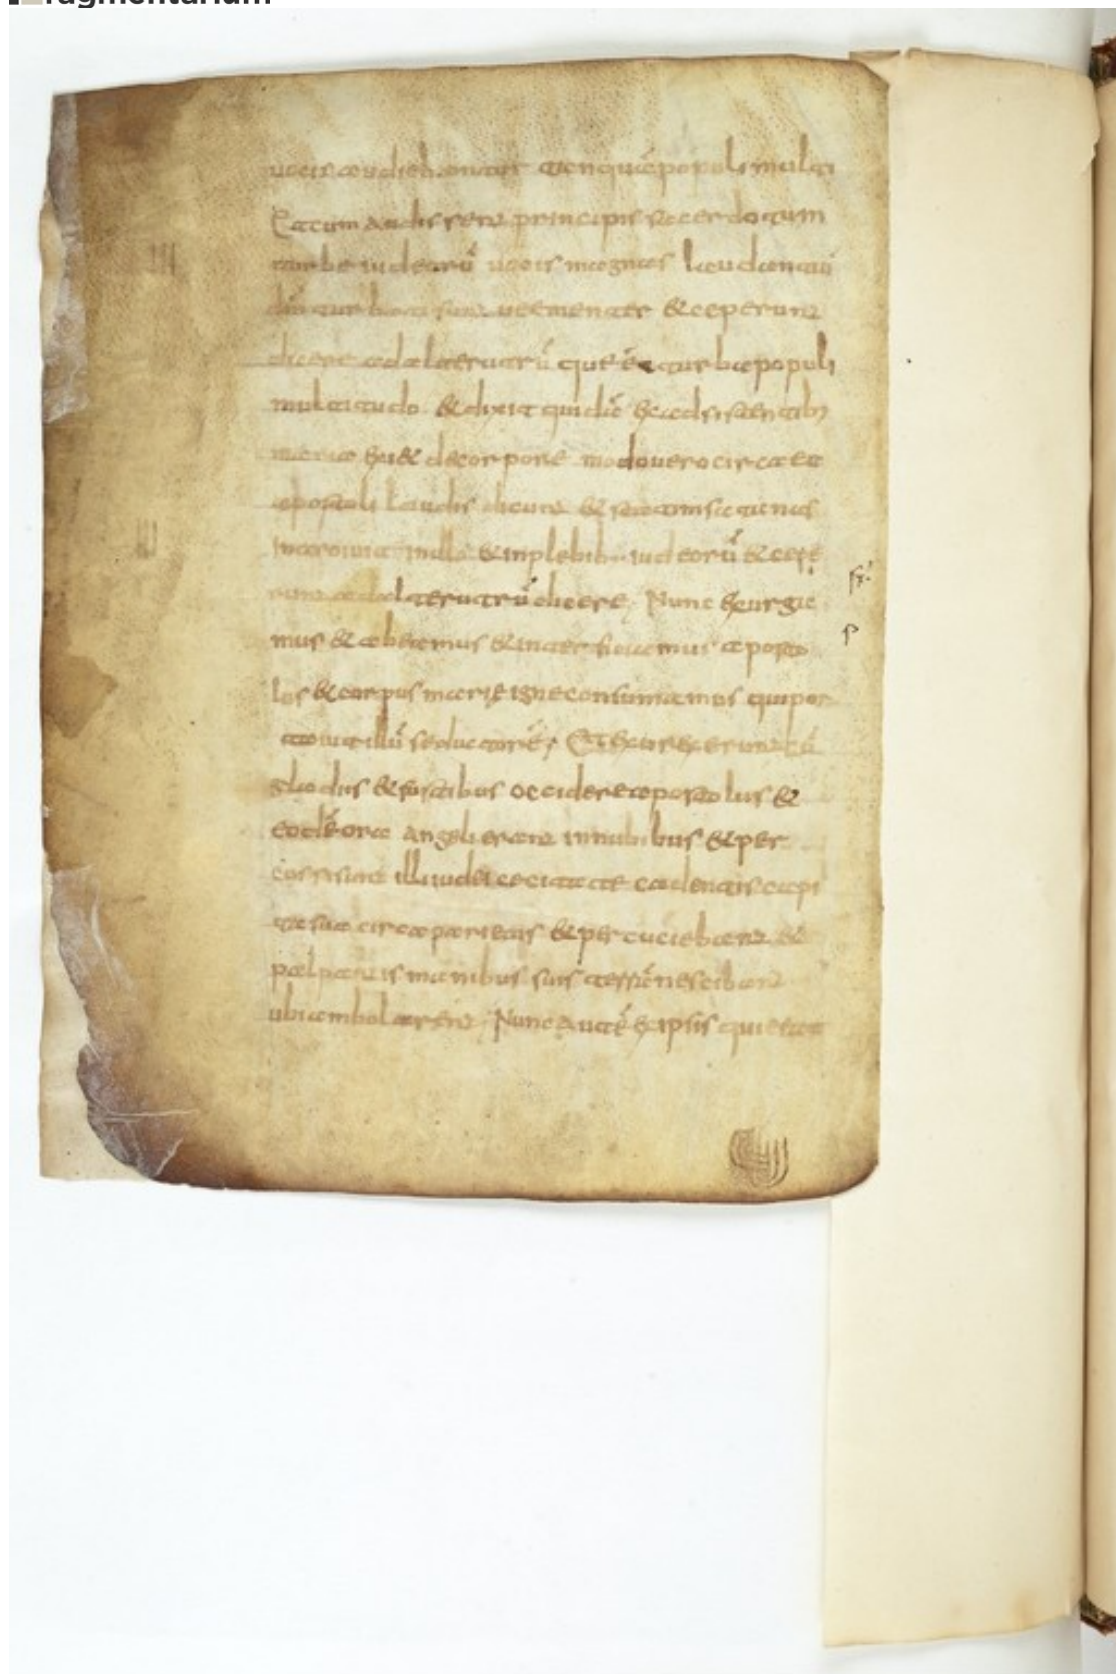 ragmentarium
uocis audiebantur tanquā populi multi
Et cum audissent principis sacerdotum
turbe iudeorū uocis magnas laudantiū
dn̄ turbati sunt ueementer & ceperunt
dicere ad alterutrū que ē turba populi
multitudo & dixit quidā ex adsistentib;
maria exi& de corpore modo uero circa ea
apostoli laudis dicunt & statim satanas
introiuit in illo & in plebib iudeorū & cepe
runt ad alterutrū dicere, Nunc exurga
mus & abeamus & interficiamus aposto
los & corpus marie igne consumamus qui por
tauit illū seductorē, Et exurexerunt cū
gladiis & fustibus occidere apostolus &
eadē ora angeli erant in nubibus & per
cussi sunt illi iudei cecitate cadentis capi
ta sua circa parietis & percuciebant &
palpantis manibus suis terrā nesciban
ubi ambolarent, Nunc autē ex ipsis qui erat